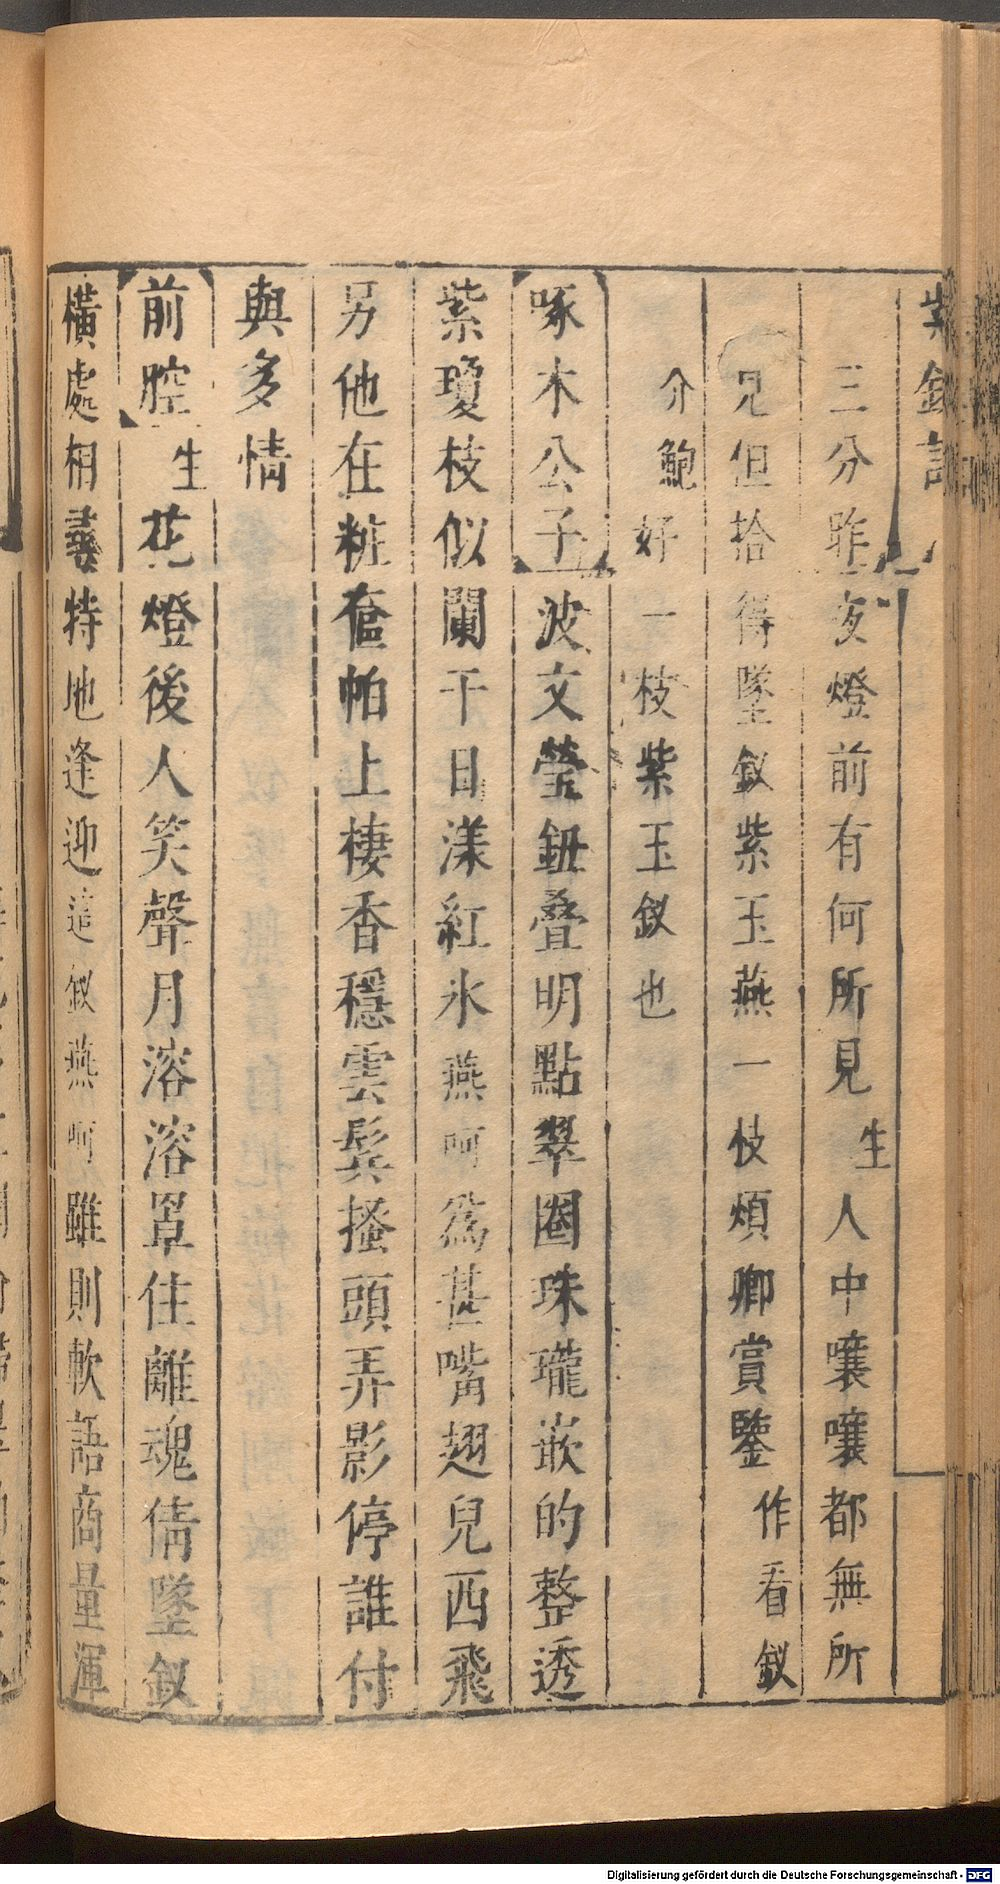 紫釵記
三分昨夜燈前有何所見生人中嚷嚷都無所
兄但拾得墜釵紫玉燕一枝煩卿賞鑒作看釵
介鮑好一枝紫玉釵也
啄木公子波文瑩鈕疊明點翠圈珠瓏嵌的整透
紫瓊枝似闌干日漾紅氷燕呵為甚嘴翅兒西飛
另他在粧奩帕上棲香穩雲鬂搔頭弄影停誰付
與多情
前腔生花燈後人笑聲月溶溶罩住離魂倩墜釵
橫處相尋特地逢迎這釵燕呵雖則軟語商量渾
Digitalisierung gefördert durch die Deutsche Forschungsgemeinschaft - DFG